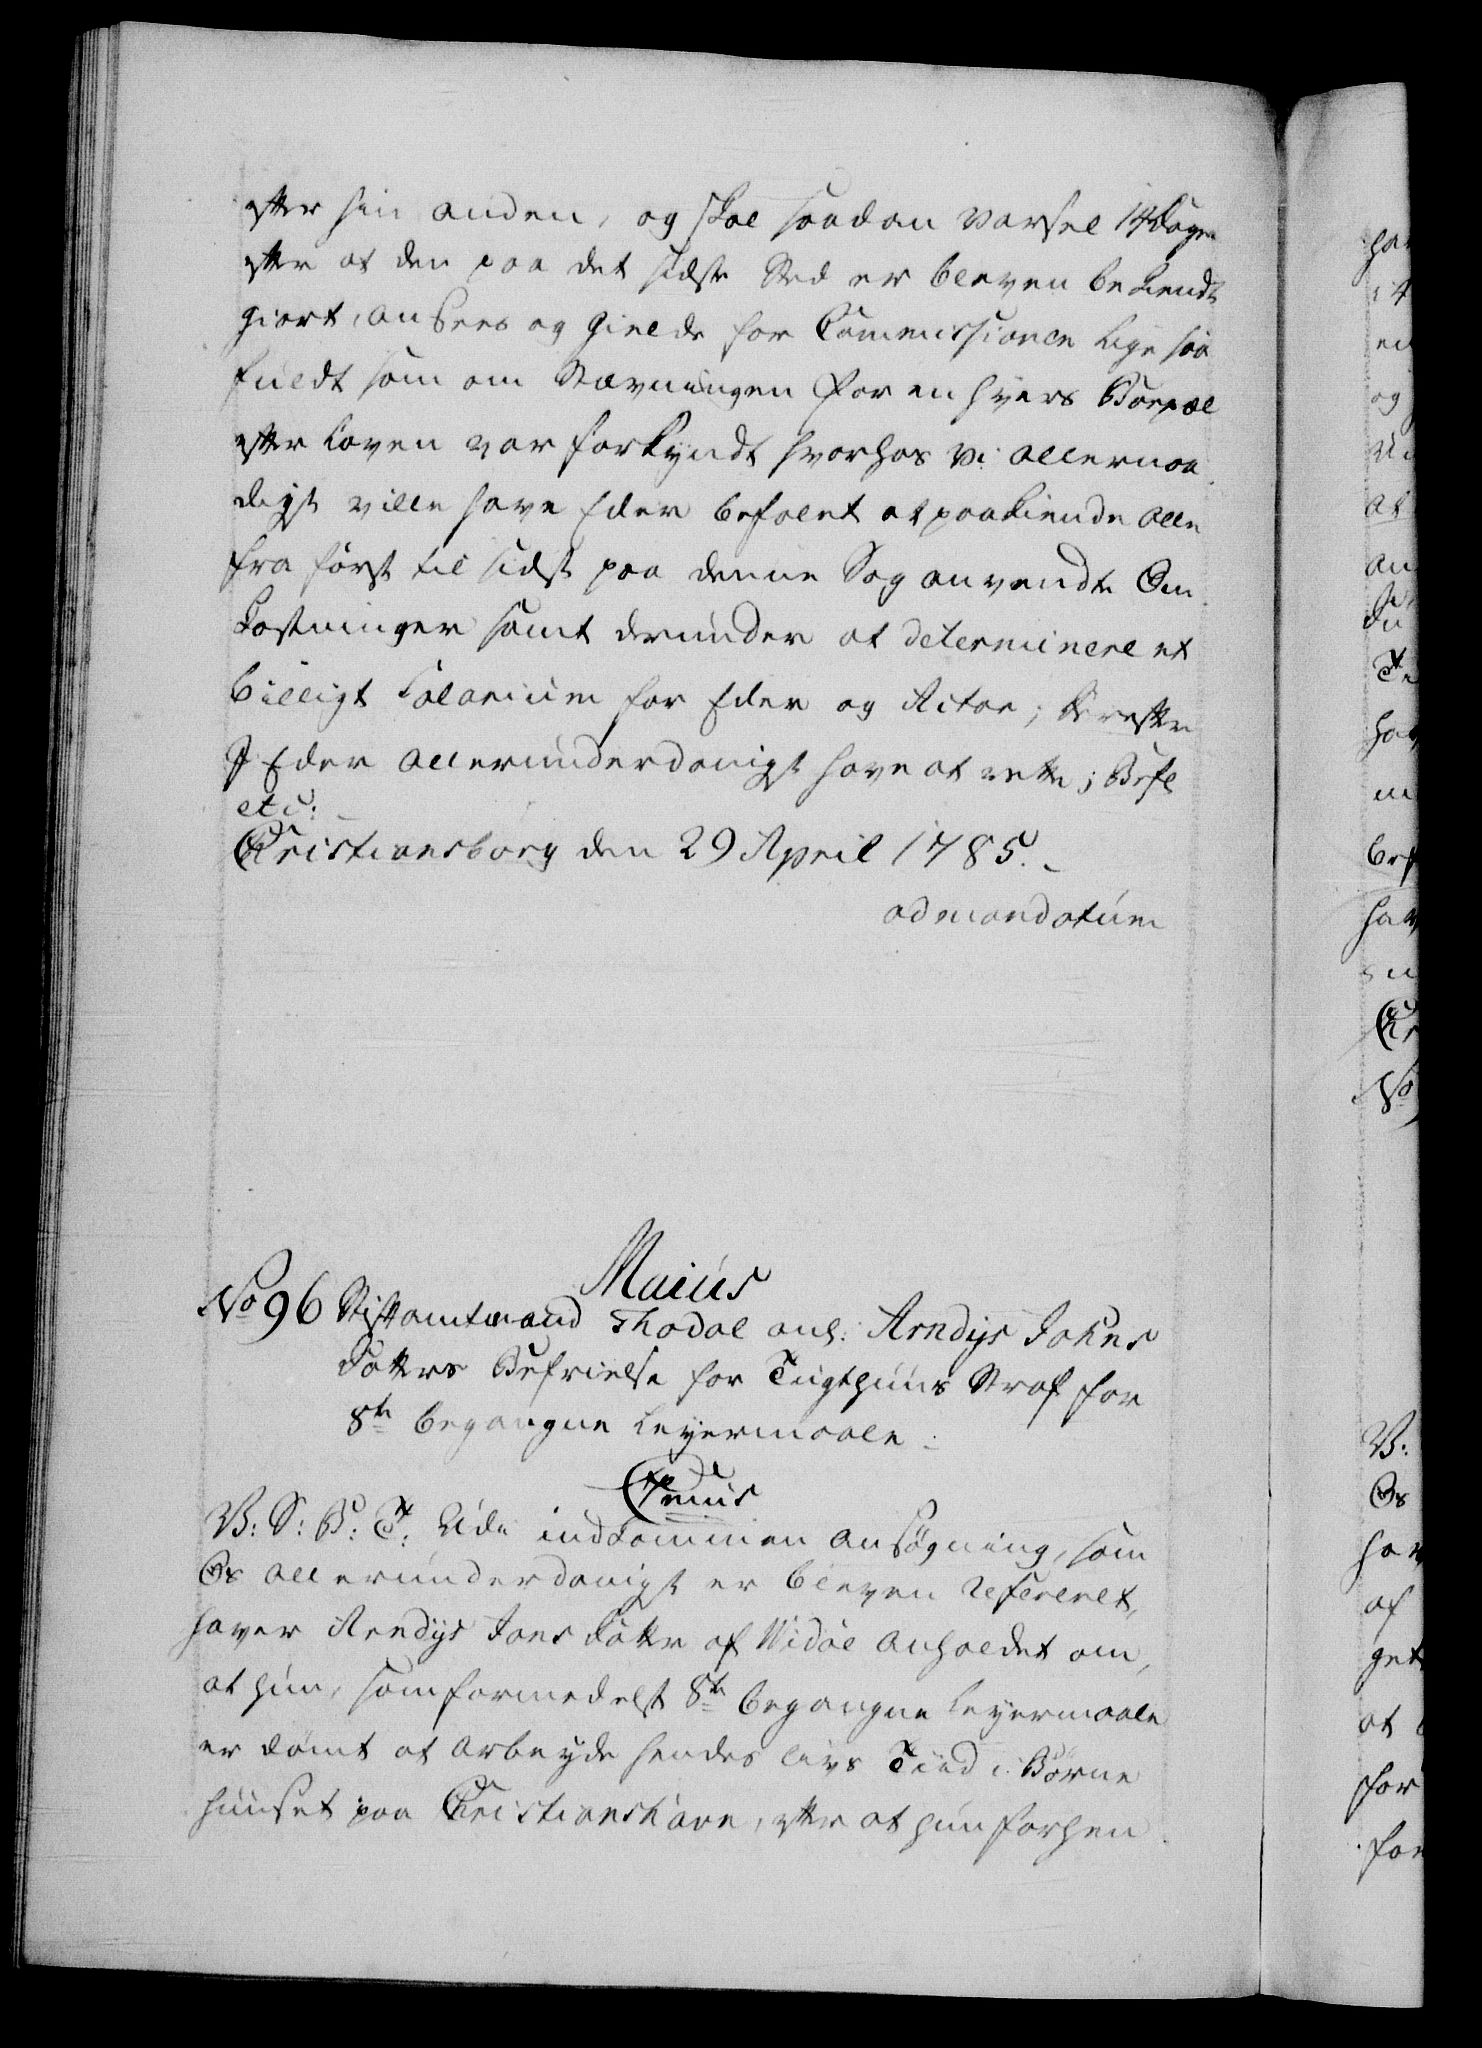 efter hin anden, og skal saadan Varsel 14 Dage
efter at den paa det sidste Sted er bleven bekiendt
giort, ansees og gielde for Commissionen lige saa
fuldt som om Stævningen for enhvers Boepæl
efter Loven var forkyndt hvorhos Vi allernaa
digst ville have Eder befalet at paakiende alle
fra først til sidst paa denne Sag anvendte Om
kostninger samt derunder at determinere et
billigt Salarium for Eder og Actor; Derefter
I Eder allerunderdanigst have at rette; Befl
etc:
Christiansborg den 29 April 1785.
ad mandatum
Maius
No 96 Stiftamtmand Thodal anl: Arndys Johns
Datters Befrielse for Tugthuus Straf for
8de begangne Leyermaale.
Cremus
V: S: B: T: Udi indkommen Ansøgning, som
Os allerunderdanigst er bleven refereret,
haver Arndys Jons Datter af Widøe anholdet om,
at hun, som formedelst 8de begangne Leyermaale
er dømt at arbeyde hendes Livs Tiid i Børne
huuset paa Christianshavn, efter at hun forhen